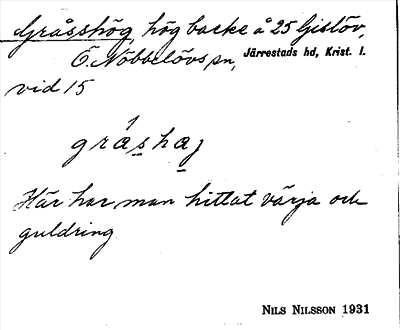 Gråsshög, hög backe å 25 Gislöv,
Ö. Nöbbelövs sn, Järrestads hd, Krist. l.
vid 15
gråshaj
Här har man hittat värja och
guldring
NILS NILSSON 1931